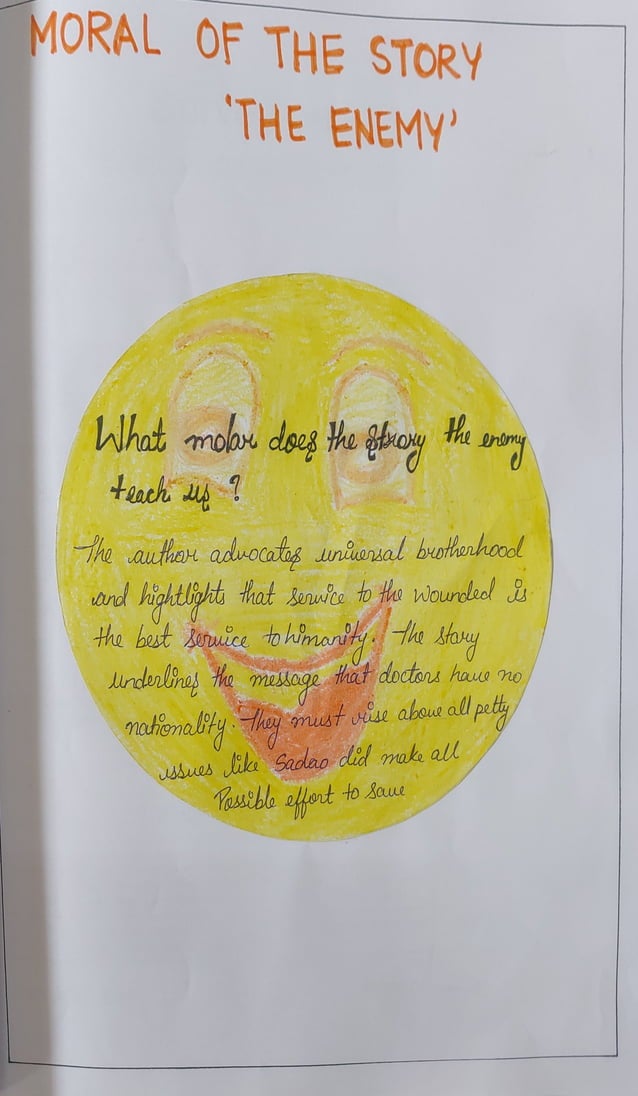 MORAL OF THE STORY
'THE ENEMY'
What molar does the strory the enemy
teach us ?
The author advocates universal brotherhood
and hightlights that service to the wounded is
the best service to himanity. The story
underlines the message that doctors have no
nationality. They must rise above all petty
issues like Sadao did make all
Possible effort to save